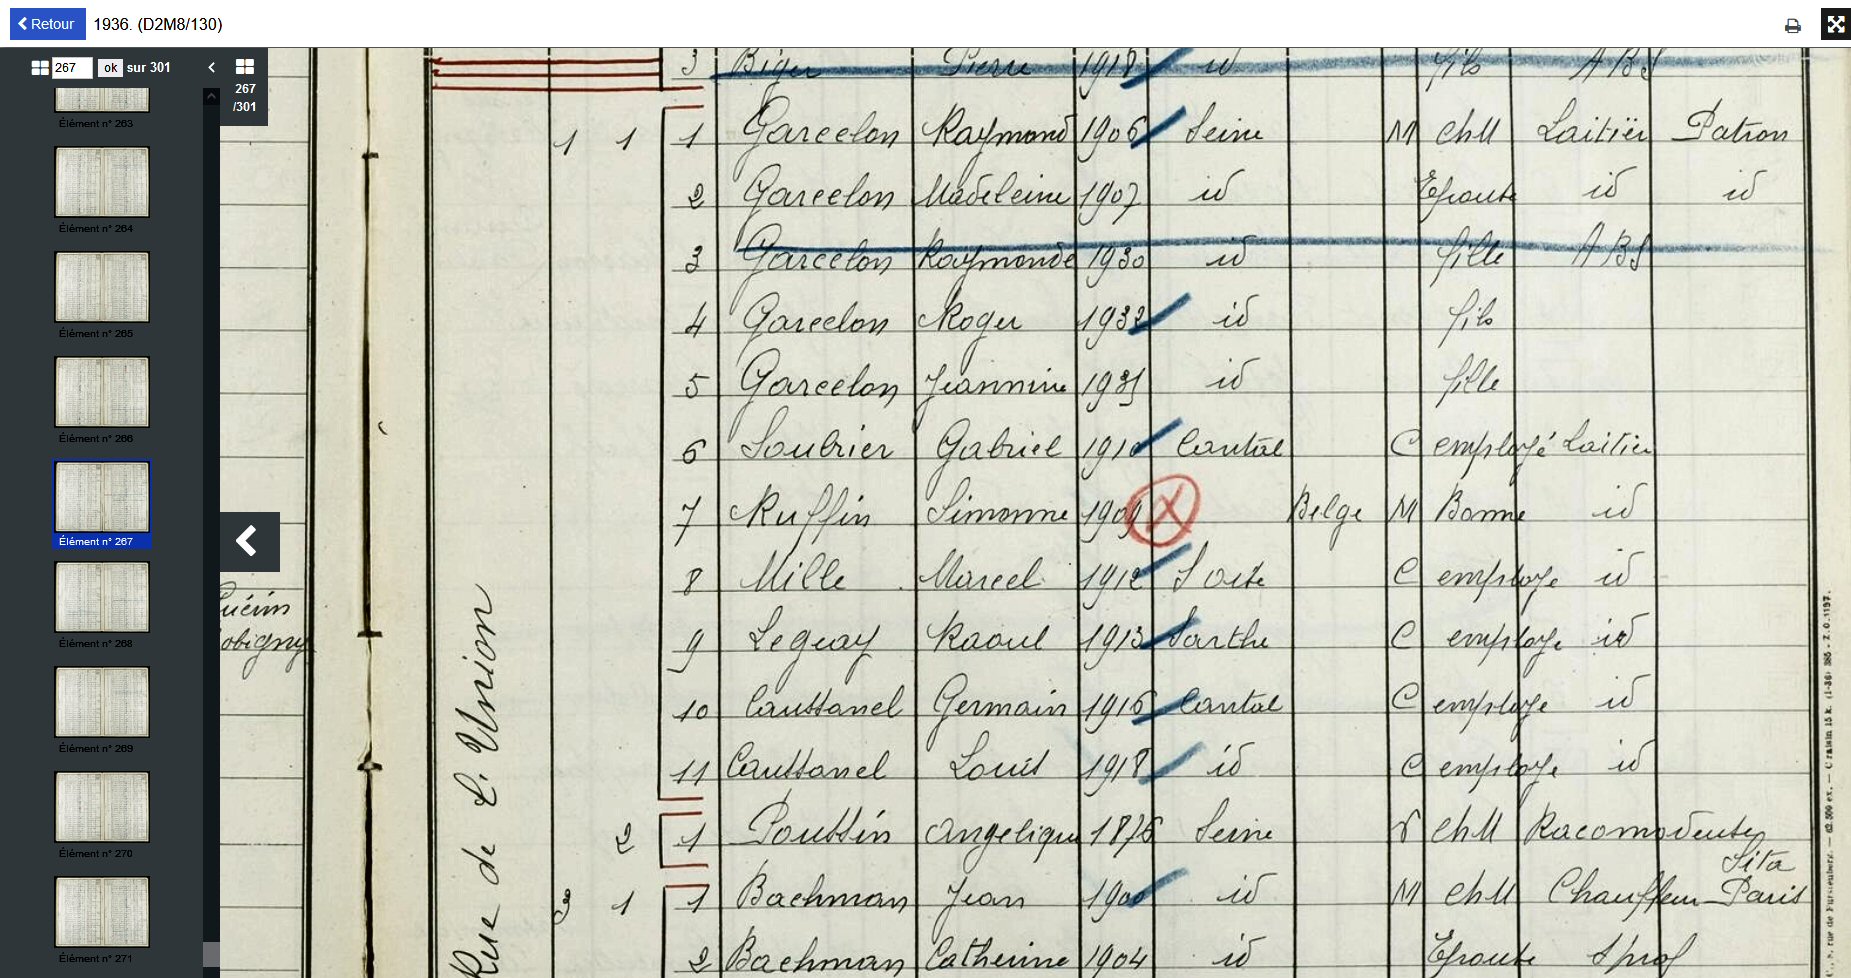 Retour 1936. (D2M8/130)
267 ok sur 301
267
/301
Élément n° 263
Élément n° 264
Élément n° 265
Élément n° 266
Élément n° 267
Élément n° 268
Élément n° 269
Élément n° 270
Élément n° 271
Rue de L'Union
3 Biger Pierre 1918 id fils ABS
1 1 1 Garcelon Raymond 1906 Seine M ch M Laitier Patron
2 Garcelon Madeleine 1907 id Epouse id id
3 Garcelon Raymonde 1930 id fille ABS
4 Garcelon Roger 1932 id fils
5 Garcelon Jeannine 1935 id fille
6 Soubrier Gabriel 1910 Cantal C employé Laitier
7 Ruffin Simonne 1904 Belge M Bonne id
8 Mille Marcel 1912 C employe id
9 Leguay Raoul 1913 Sarthe C employe id
10 Caussanel Germain 1916 Cantal C employe id
11 Caussanel Louis 1918 id C employe id
2 1 Poussin Angelique 1876 Seine V ch M Racomodeuse
Sita
3 1 1 Bachman Jean 1900 id M ch M Chauffeur Paris
2 Bachman Catherine 1904 id Epouse S prof